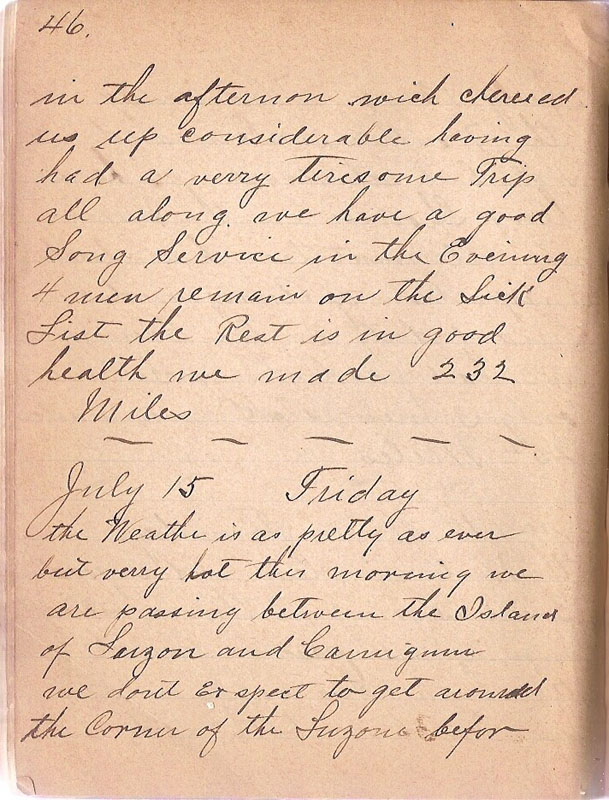 46.
in the afternon wich chereed
us up considerable having
had a verry tiresome Trip
all along. we have a good
Song Service in the Evening
4 men remain on the Sick
List the Rest is in good
health we made 232
Miles
July 15 Friday
the Weathe is as pretty as ever
but verry hot this morning we
are passing between the Island
of Luzon and Camigum
we dont Exspect to get around
the Corner of the Luzone befor